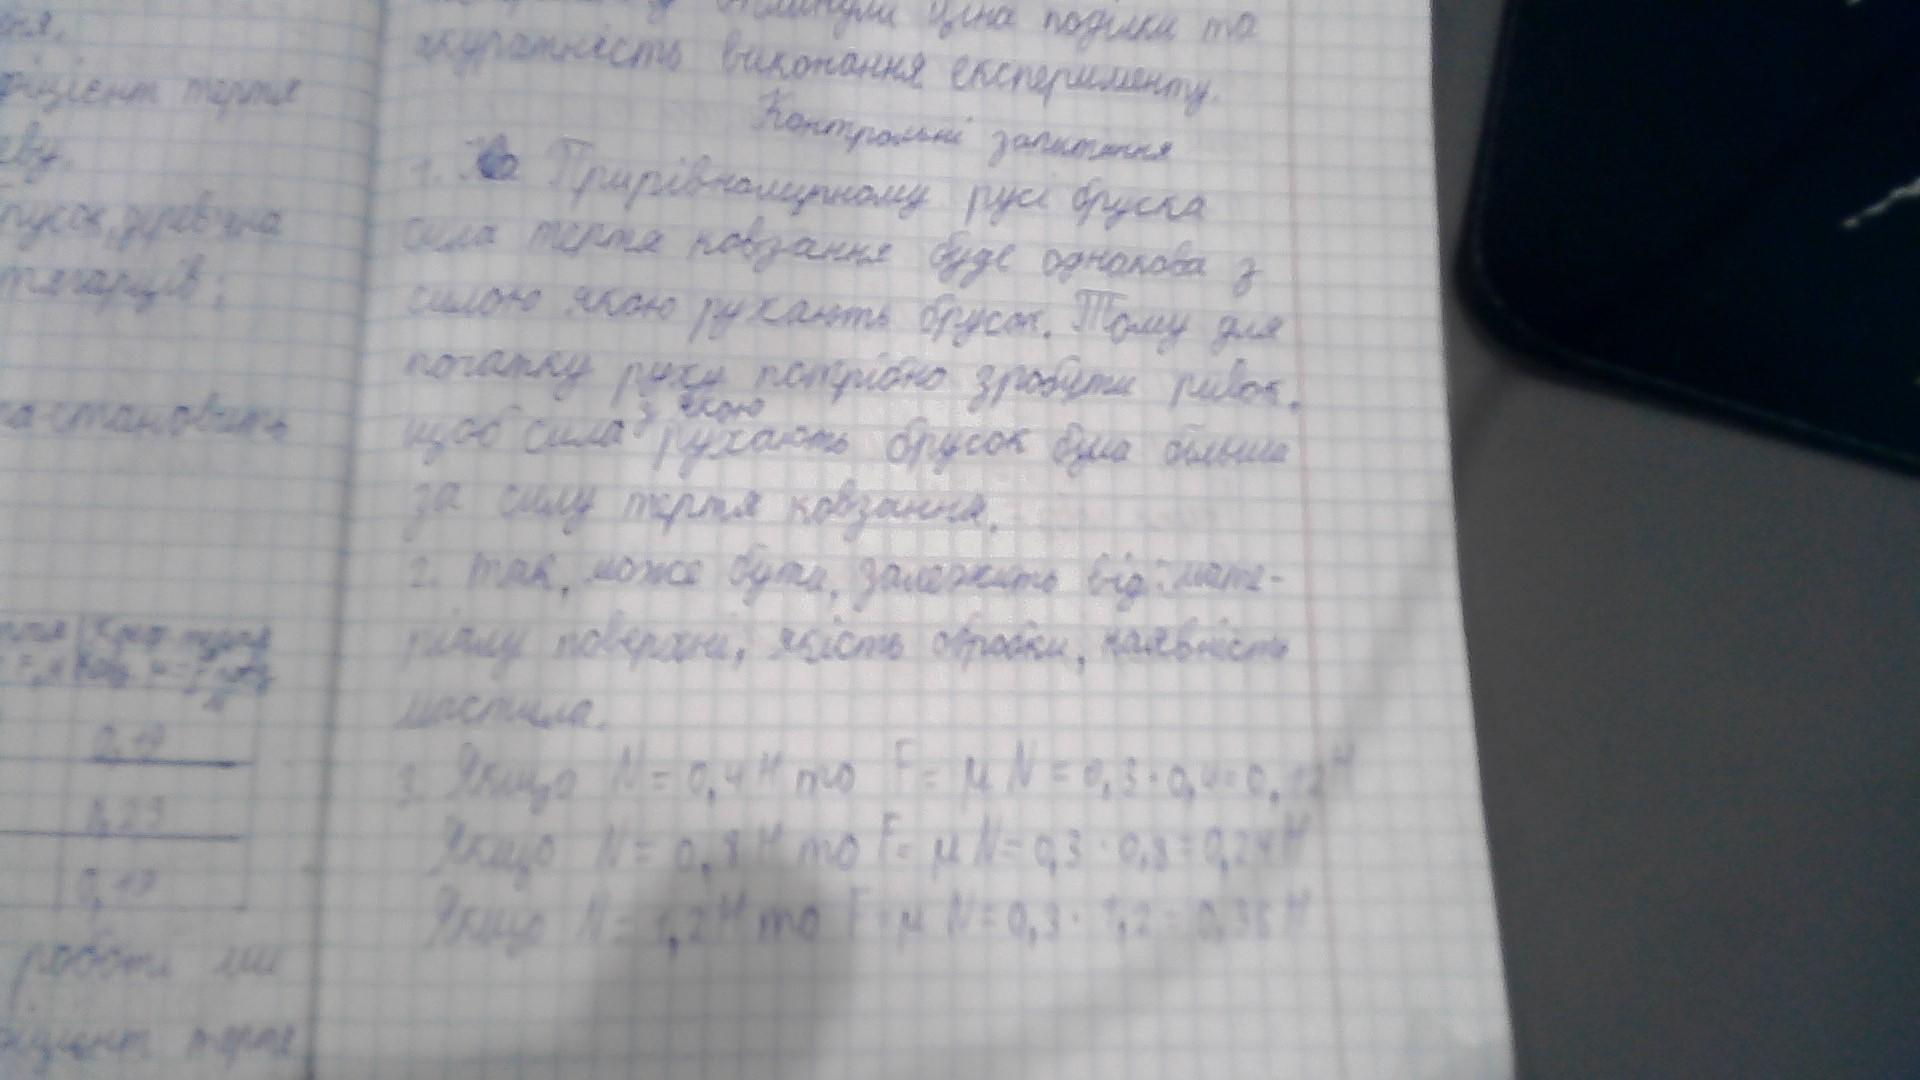 ня.
фіцієнт тертя
еву.
брусок, дерев'яна
тягарців;
та становить
0,17
0,25
0,17
роботи ми
фіцієнт тертя
вплинули ціна поділки та
акуратність виконання експерименту.
Контрольні запитання
1. Прирівномірному русі бруска
сила тертя ковзання буде однакова з
силою якою рухають брусок. Тому для
початку руху потрібно зробити ривок.
щоб сила з якою рухають брусок була більша
за силу тертя ковзання.
2. Так, може бути, залежить від: мате-
ріалу поверхні, якість обробки, наявність
мастила.
3. Якщо N = 0,4 Н то F = μ N = 0,3 · 0,4 = 0,12 Н
Якщо N = 0,8 Н то F = μ N = 0,3 · 0,8 = 0,24 Н
Якщо N = 1,2 Н то F = μ N = 0,3 · 1,2 = 0,36 Н